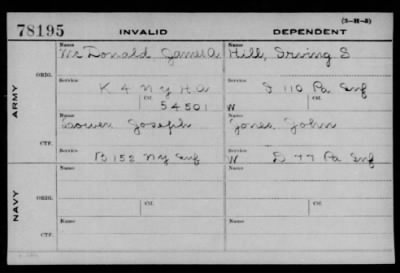 (3-H-5)
78195 INVALID DEPENDENT
ARMY
ORIG.
Name Name
McDonald James A Hill, Irving S
Service Service
K 4 N Y H.A. I 110 Pa Inf
Ctf. Ctf.
54501 W
CTF.
Name Name
Bower Joseph Jones, John
Service Service
B 152 N Y Inf W D 77 Pa Inf
NAVY
ORIG.
Name Name
Ctf. Ctf.
CTF.
Name Name